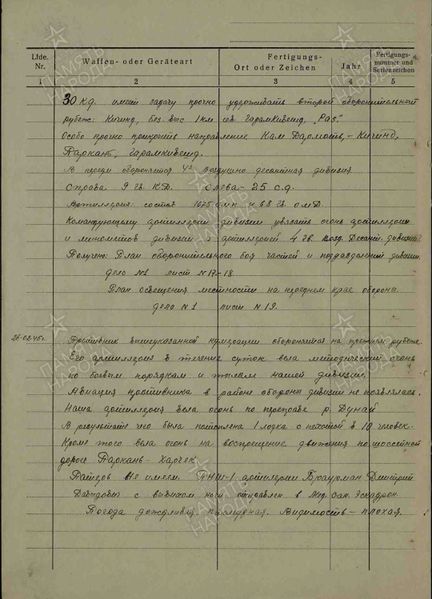 Lfde. Nr. Waffen- oder Geräteart Fertigungs- Ort oder Zeichen Jahr Fertigungsnummer und Serienzeichen
1 2 3 4 5
30 кд. имеет задачу прочно удерживать второй оборонительный
рубеж: Кичинд, без. выс 1 км
Особо прочно прикрыть направление Кам Дармоты, - Кичинд,
Паркань,
В переди обороняется 4 воздушно десантная дивизия
Справа 9 гв. К.Д. Слева - 25 с.д.
Командующему артиллерии дивизии увязать огонь артиллерии
и минометов дивизии с артиллерией 4 гв. возд. Десант. дивизии
Получено: План оборонительного боя частей и подразделений дивизии
дело №1 лист №17-18
План освещения местности на переднем крае обороны
дело №1 лист №19.
Противник вышеуказанной нумерации обороняется на прежнем рубеже.
Его артиллерия в течение суток вела методический огонь
по боевым порядкам и тылам нашей дивизии
Авиация противника в районе обороны дивизии не появлялась.
Наша артиллерия вела огонь по переправе р. Дунай
В результате чего была потоплена 1 лодка с пехотой в 10 человек.
Кроме того вела огонь на воспрещение движения по шоссейной
дороге Паркань -
артиллерии Дмитрий
Давидович с отправлен в Мед. Сан. Эскадрон.
Погода дождливая пасмурная. Видимость - плохая.
ПАМЯТЬ НАРОДА